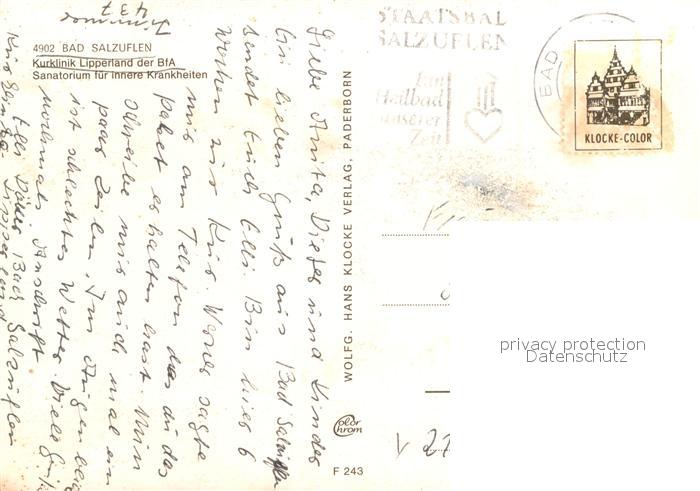 Zimmer
437
4902 BAD SALZUFLEN
Kurklinik Lipperland der BfA
Sanatorium für innere Krankheiten
Liebe Anita, Dieter und Kinder
Ein lieben Gruß aus Bad Salzuflen
sendet Euch Elli. Bin hier 6
Wochen zur Kur. Werner sagte
mir am Telefon das du das
Paket erhalten hast. Nun
schreibe mir auch mal ein
paar Zeilen. Im Augenblick
ist schlechtes Wetter. Viele
nochmals Anschrift
Elli Bad Salzuflen
Lipperland
WOLFG. HANS KLOCKE VERLAG, PADERBORN
Color
chrom
F 243
STAATSBAD
SALZUFLEN
Ein
Heilbad
unserer
Zeit
BAD
KLOCKE-COLOR
privacy protection
Datenschutz
V 27